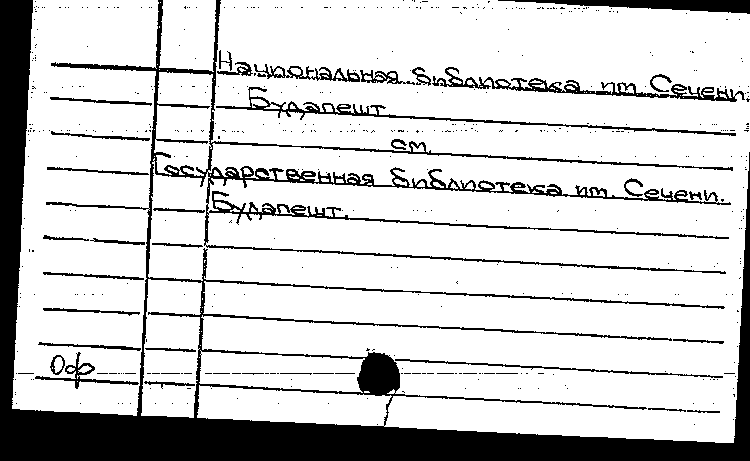 Национальная библиотека им. Сечени.
Будапешт
см.
Государственная библиотека им. Сечени.
Будапешт.
Оф